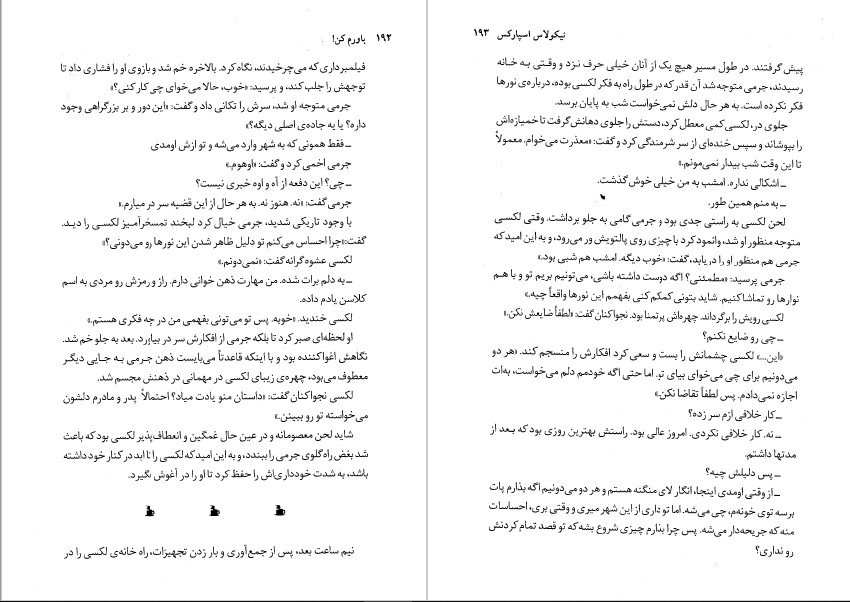 ۱۹۲ باورم کن!
فیلمبرداری که می‌چرخیدند، نگاه کرد. بالاخره خم شد و بازوی او را فشاری داد تا
توجهش را جلب کند، و پرسید: «خوب، حالا می‌خوای چی کار کنی؟»
جرمی متوجه او شد، سرش را تکانی داد و گفت: «این دور و بر بزرگراهی وجود
داره؟ یا یه جاده‌ی اصلی دیگه؟»
ـ فقط همونی که به شهر وارد می‌شه و تو ازش اومدی
جرمی اخمی کرد و گفت: «اوهوم.»
ـ چی؟ این دفعه از آه و اوه خبری نیست؟
جرمی گفت: «نه. هنوز نه. به هر حال از این قضیه سر در میارم.»
با وجود تاریکی شدید، جرمی خیال کرد لبخند تمسخرآمیز لکسی را دید.
گفت:«چرا احساس می‌کنم تو دلیل ظاهر شدن این نورها رو می‌دونی؟»
لکسی عشوه‌گرانه گفت: «نمی‌دونم.»
ـ به دلم برات شده. من مهارت ذهن خوانی دارم. راز و رمزش رو مردی به اسم
کلاسن یادم داده.
لکسی خندید. «خوبه. پس تو می‌تونی بفهمی من در چه فکری هستم.»
او لحظه‌ای صبر کرد تا بلکه جرمی از افکارش سر در بیاورد. بعد به جلو خم شد.
نگاهش اغواکننده بود و با اینکه قاعدتاً می‌بایست ذهن جرمی به جایی دیگر
معطوف می‌بود، چهره‌ی زیبای لکسی در مهمانی در ذهنش مجسم شد.
لکسی نجواکنان گفت: «داستان منو یادت میاد؟ احتمالاً پدر و مادرم دلشون
می‌خواسته تو رو ببینن.»
شاید لحن معصومانه و در عین حال غمگین و انعطاف‌پذیر لکسی بود که باعث
شد بغض راه گلوی جرمی را ببندد، و به این امید که لکسی را تا ابد در کنار خود داشته
باشد، به شدت خودداری‌اش را حفظ کرد تا او را در آغوش نگیرد.
نیم ساعت بعد، پس از جمع‌آوری و بار زدن تجهیزات، راه خانه‌ی لکسی را در
نیکولاس اسپارکس ۱۹۳
پیش گرفتند. در طول مسیر هیچ یک از آنان خیلی حرف نزد و وقتی به خانه
رسیدند، جرمی متوجه شد آن قدر که در طول راه به فکر لکسی بوده، درباره‌ی نورها
فکر نکرده است. به هر حال دلش نمی‌خواست شب به پایان برسد.
جلوی در، لکسی کمی معطل کرد، دستش را جلوی دهانش گرفت تا خمیازه‌اش
را بپوشاند و سپس خنده‌ای از سر شرمندگی کرد و گفت: «معذرت می‌خوام. معمولاً
تا این وقت شب بیدار نمی‌مونم.»
ـ اشکالی نداره. امشب به من خیلی خوش گذشت.
ـ به منم همین طور.
لحن لکسی به راستی جدی بود و جرمی گامی به جلو برداشت. وقتی لکسی
متوجه منظور او شد، وانمود کرد با چیزی روی پالتویش ور می‌رود، و به این امید که
جرمی هم منظور او را دریابد، گفت: «خوب دیگه. امشب هم شبی بود.»
جرمی پرسید: «مطمئنی؟ اگه دوست داشته باشی، می‌تونیم بریم تو و با هم
نوارها رو تماشا کنیم. شاید بتونی کمکم کنی بفهمم این نورها واقعاً چیه.»
لکسی رویش را برگرداند. چهره‌اش پرتمنا بود. نجواکنان گفت: «لطفاً ضایعش نکن.»
ـ چی رو ضایع نکنم؟
«این...» لکسی چشمانش را بست و سعی کرد افکارش را منسجم کند. «هر دو
می‌دونیم برای چی می‌خوای بیای تو. اما حتی اگه خودمم دلم می‌خواست، به‌ات
اجازه نمی‌دادم. پس لطفاً تقاضا نکن.»
ـ کار خلافی ازم سر زده؟
ـ نه. کار خلافی نکردی. امروز عالی بود. راستش بهترین روزی بود که بعد از
مدتها داشتم.
ـ پس دلیلش چیه؟
ـ از وقتی اومدی اینجا، انگار لای منگنه هستم و هر دو می‌دونیم اگه بذارم پات
برسه توی خونه‌م، چی می‌شه. اما تو داری از این شهر میری و وقتی بری، احساسات
منه که جریحه‌دار می‌شه. پس چرا بذارم چیزی شروع بشه که تو قصد تمام کردنش
رو نداری؟